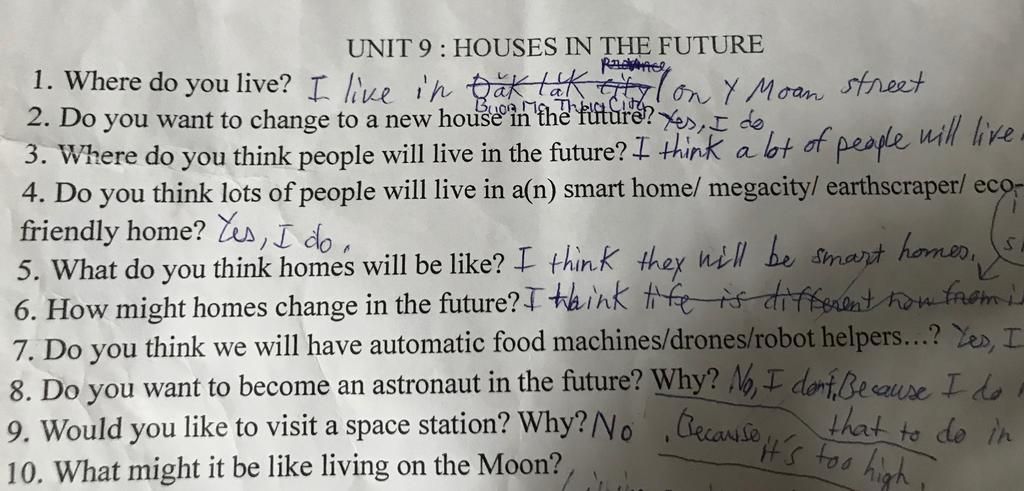 UNIT 9 : HOUSES IN THE FUTURE
Province
1. Where do you live? I live in Đắk Lắk City / on Y Moan street
Buon Ma Thuot City
2. Do you want to change to a new house in the future? Yes, I do
3. Where do you think people will live in the future? I think a lot of people will live
4. Do you think lots of people will live in a(n) smart home/ megacity/ earthscraper/ eco-
friendly home? Yes, I do.
5. What do you think homes will be like? I think they will be smart homes.
6. How might homes change in the future? I think life is different now from
7. Do you think we will have automatic food machines/drones/robot helpers…? Yes, I
8. Do you want to become an astronaut in the future? Why? No, I don't, Because I do
that to do in
9. Would you like to visit a space station? Why? No, Because it's too high.
10. What might it be like living on the Moon?